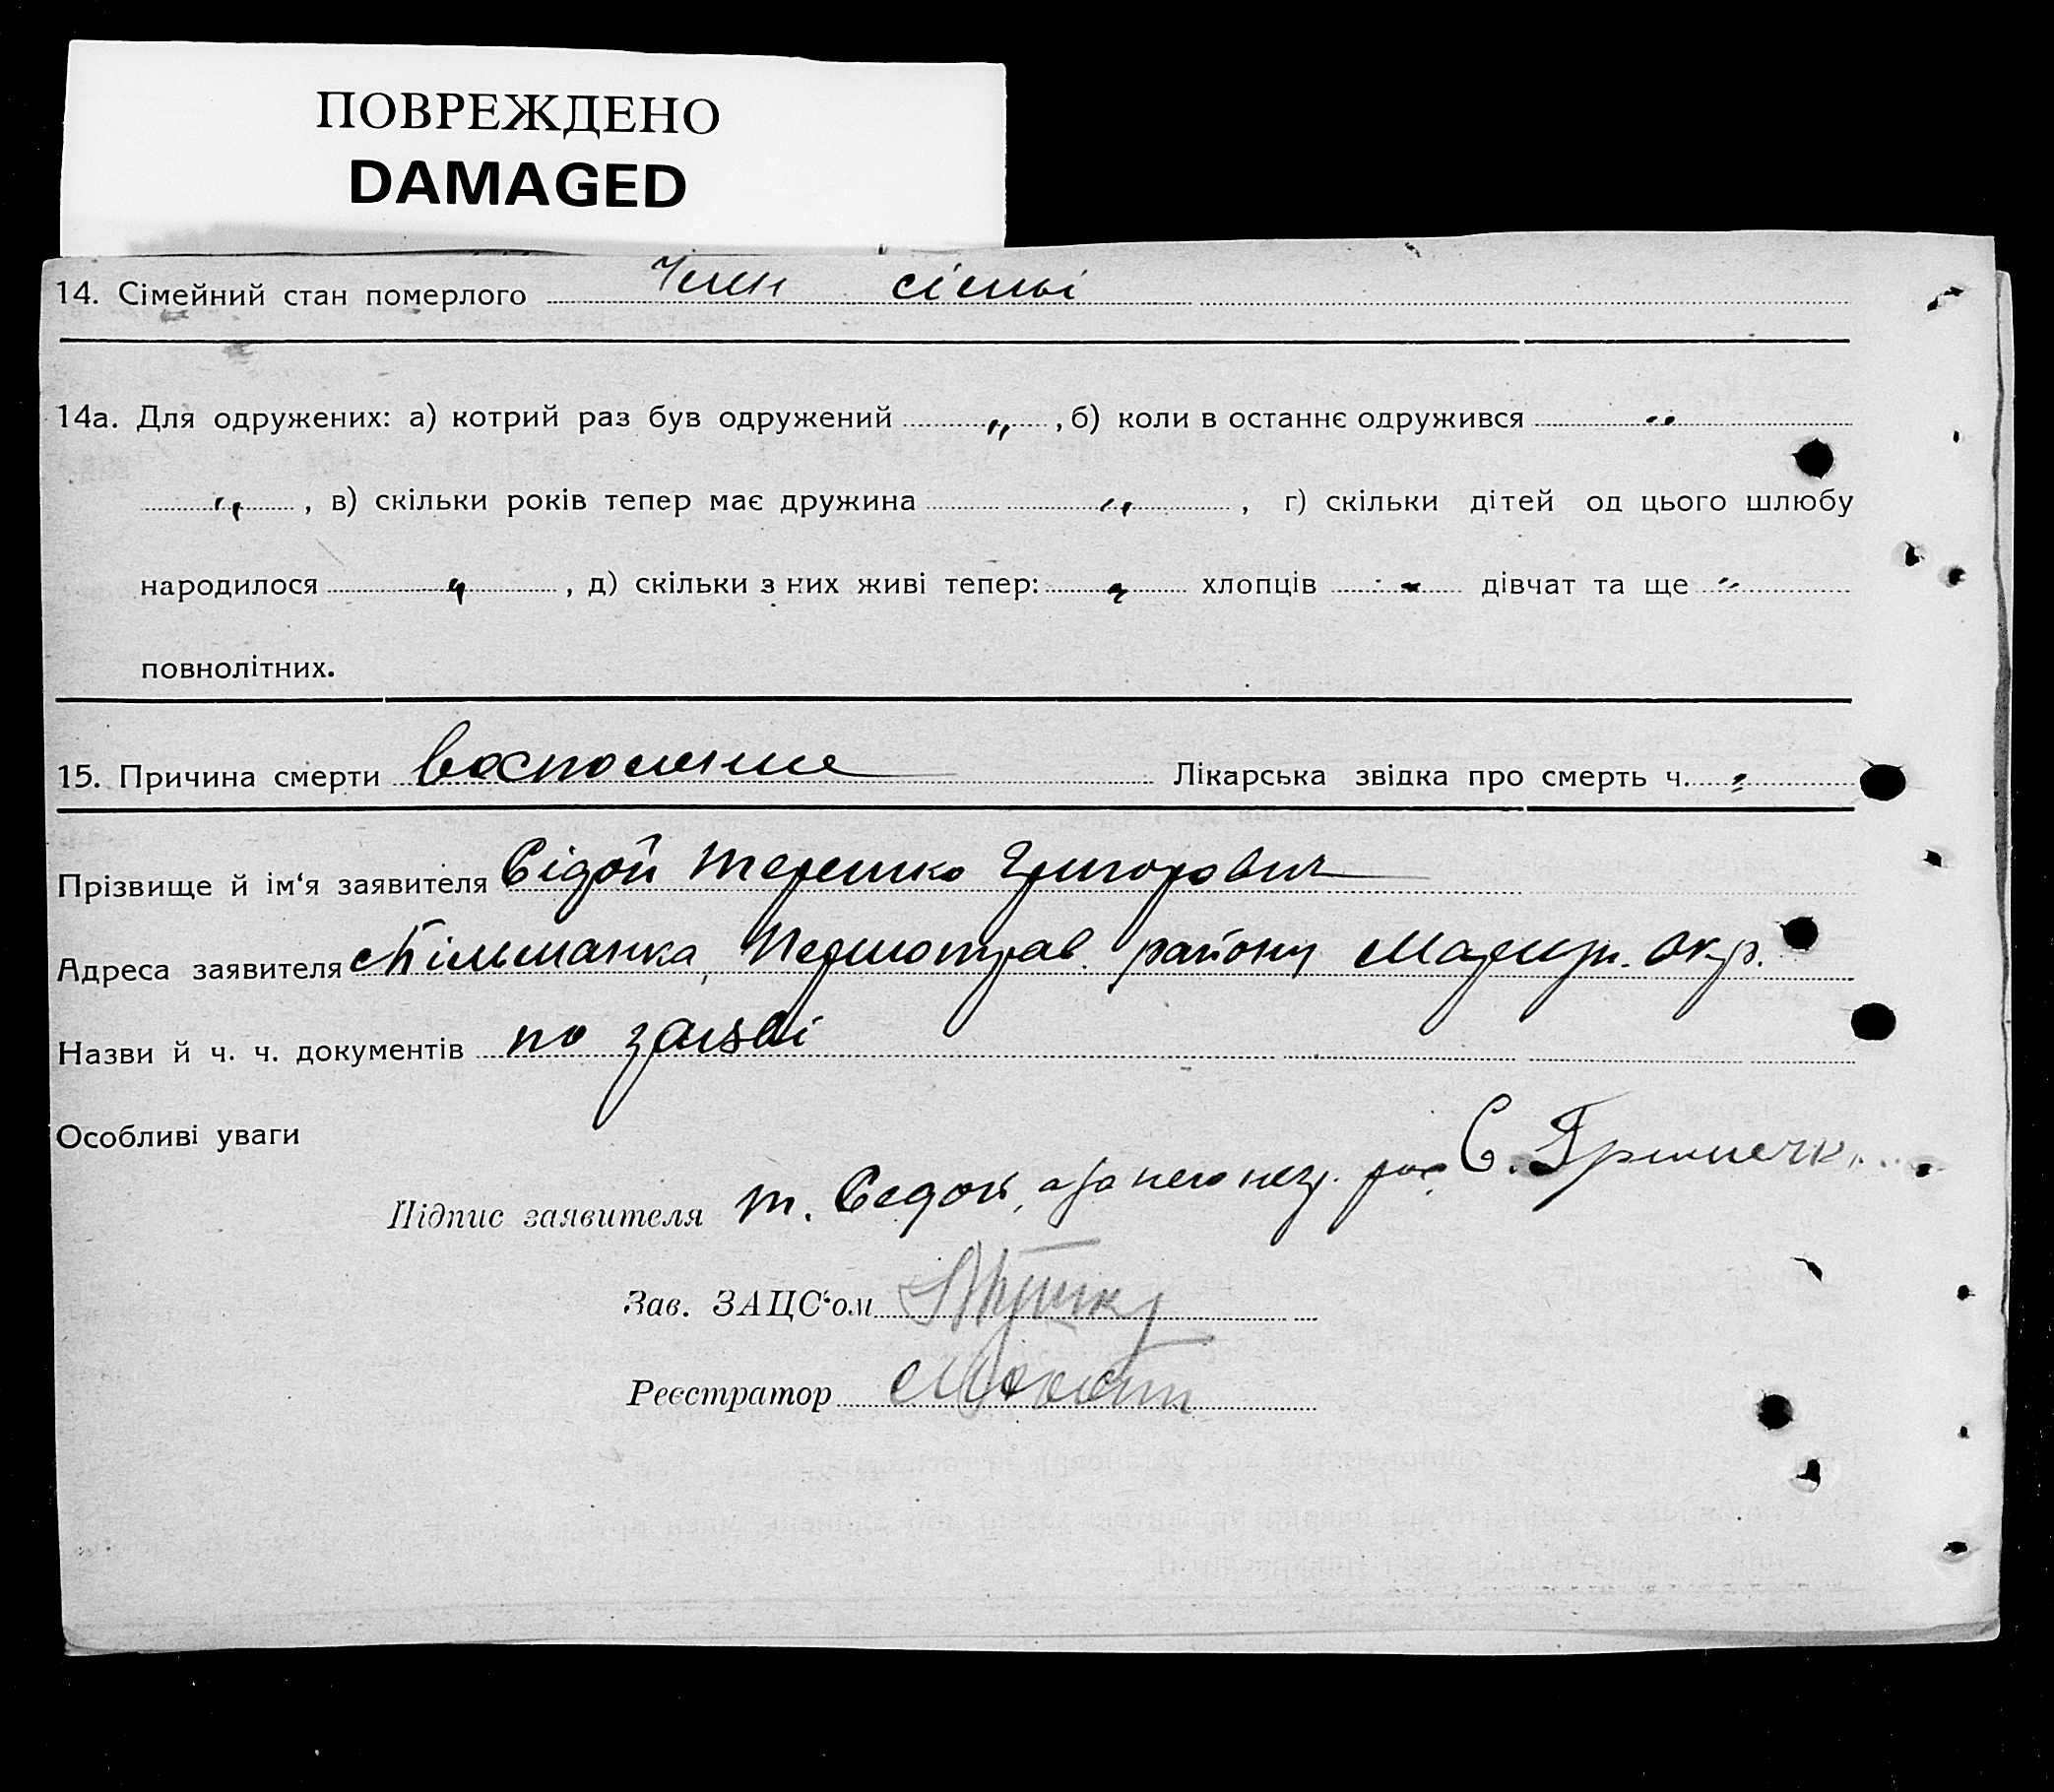 ПОВРЕЖДЕНО
DAMAGED
14. Сімейний стан померлого Член сісмьі
14а. Для одружених: а) котрий раз був одружений „ , б) коли в останнє одружився „
„ , в) скільки років тепер має дружина „ , г) скільки дітей од цього шлюбу
народилося „ , д) скільки з них живі тепер: „ хлопців „ дівчат та ще „
повнолітних.
15. Причина смерти восполение Лікарська звідка про смерть ч. „
Прізвище й ім'я заявителя Сідой Терешко Григорович
Адреса заявителя Кільманка, Першотрав. району Маріюп. Окр.
Назви й ч. ч. документів по заяві
Особливі уваги
Підпис заявителя Т. Седой, а за него негр. рас. С.
Зав. ЗАЦС'ом
Реєстратор